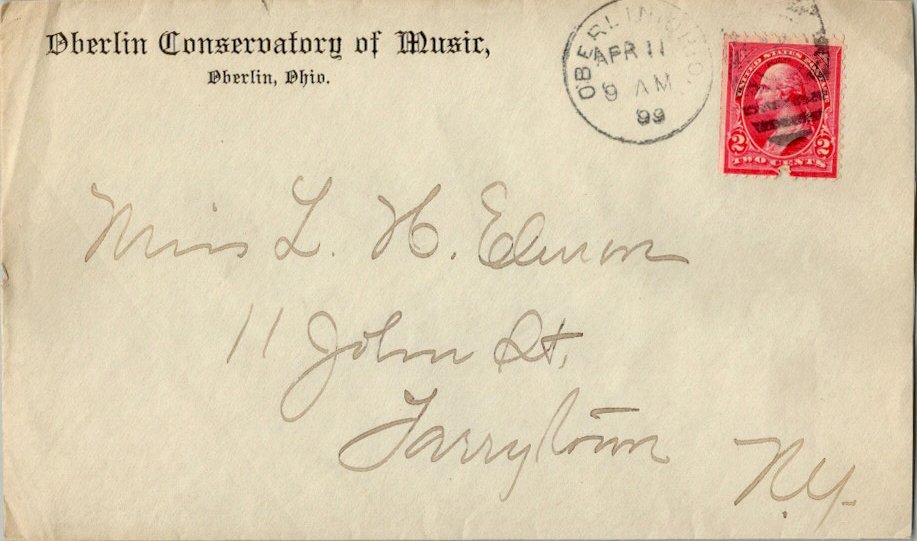 Oberlin Conservatory of Music,
Oberlin, Ohio.
OBERLIN, OHIO.
APR 11
9 AM
99
UNITED STATES POSTAGE
2 2
TWO CENTS
Miss L. H.
11 John St,
Tarrytown
N.Y.